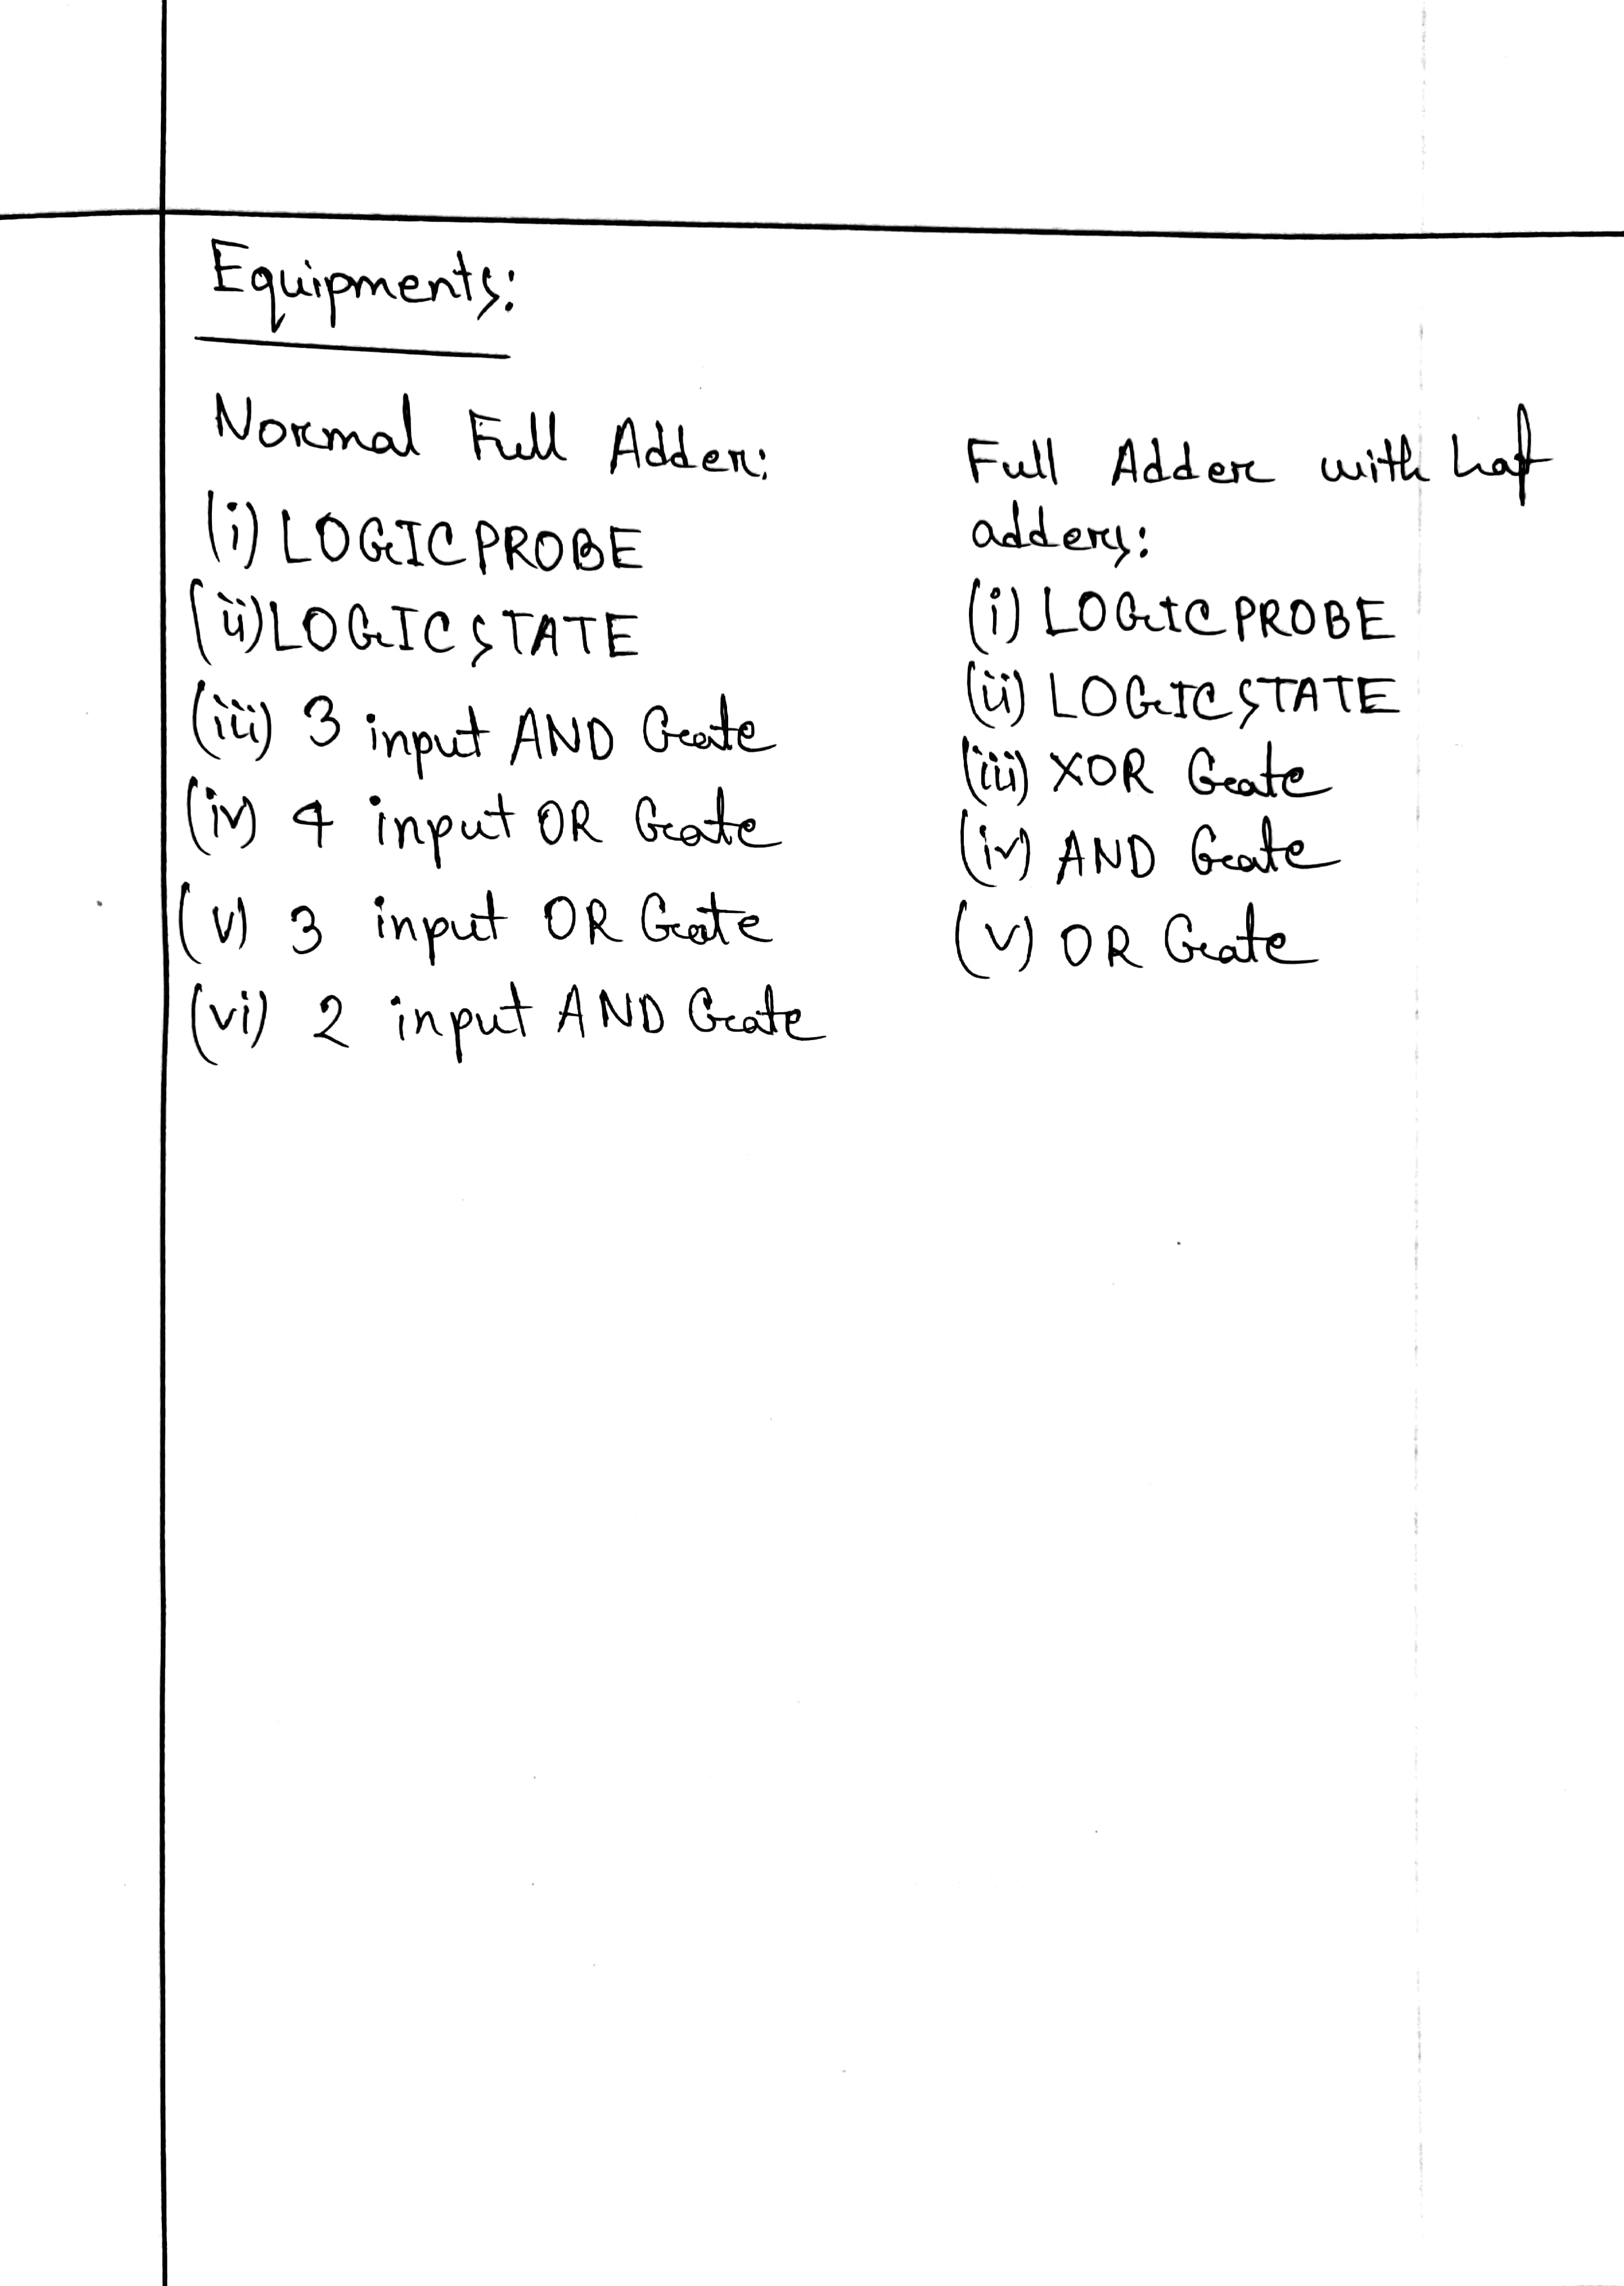 Equipments:
Normal Full Adder:
(i) LOGICPROBE
(ii) LOGICSTATE
(iii) 3 input AND Gate
(iv) 4 input OR Gate
(v) 3 input OR Gate
(vi) 2 input AND Gate
Full Adder with haf
adders:
(i) LOGICPROBE
(ii) LOGICSTATE
(iii) XOR Gate
(iv) AND Gate
(v) OR Gate